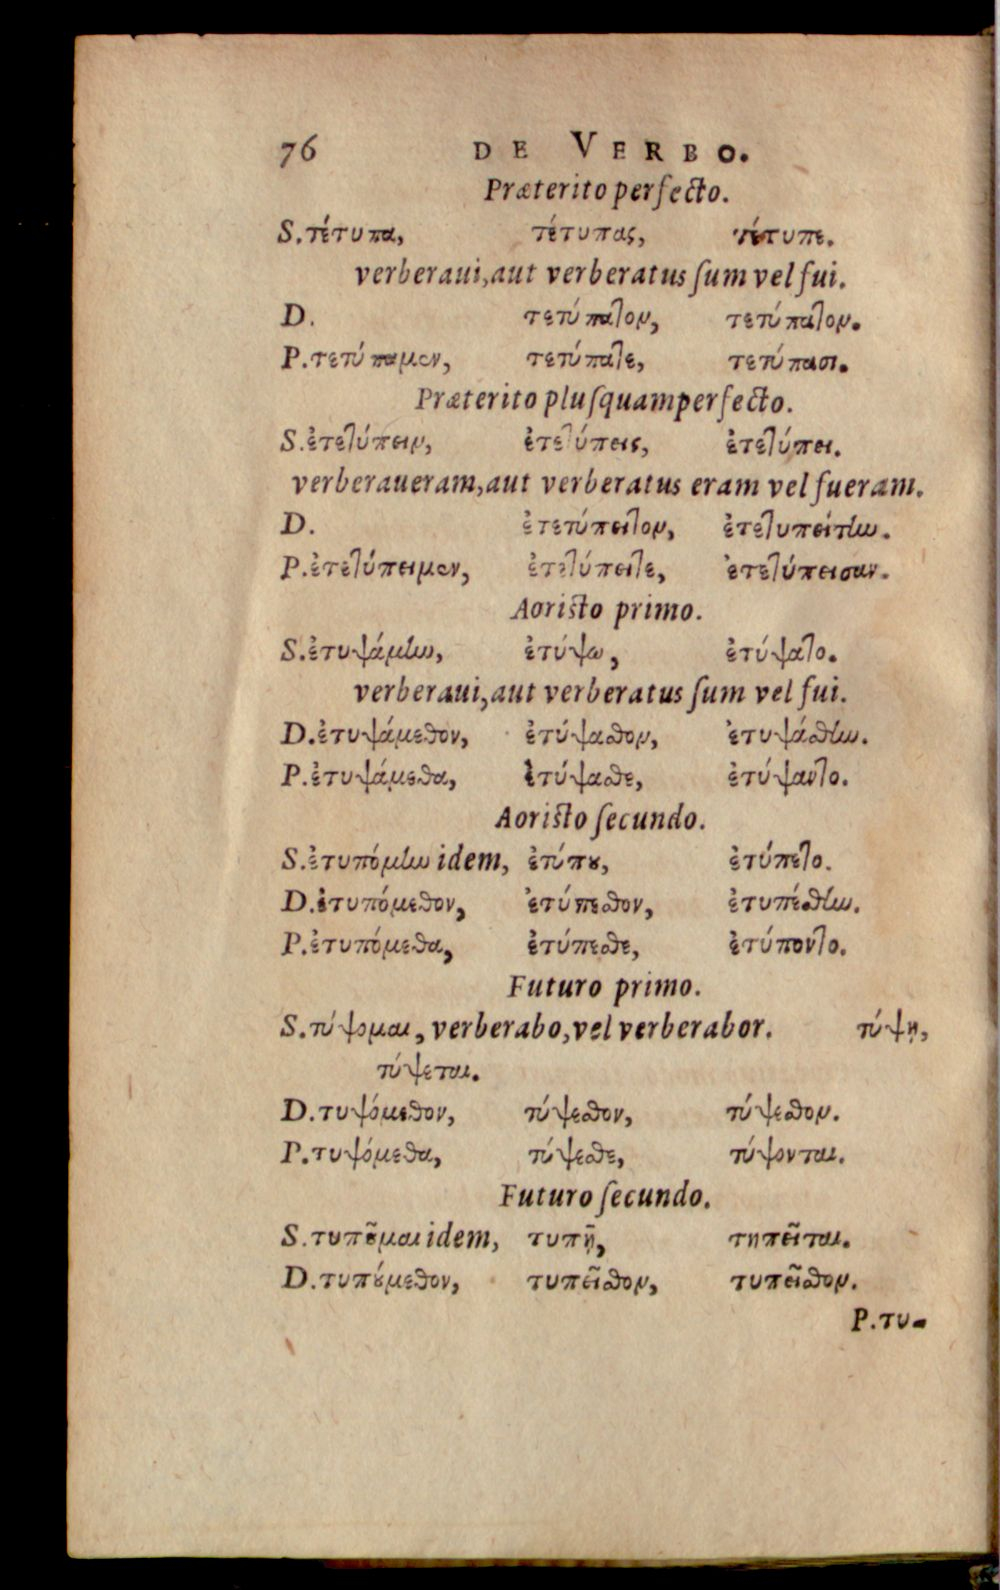 76 DE VERBO.
Præterito perfecto.
S. τέτυπα, τέτυπας, τέτυπε.
verberaui, aut verberatus ſum vel fui.
D. τετύπατον, τετύπατον.
P. τετύπαμεν, τετύπατε, τετύπασι.
Præterito pluſquamperfecto.
S. ἐτετύπειν, ἐτετύπεις, ἐτετύπει.
verberaueram, aut verberatus eram vel fueram.
D. ἐτετύπειτον, ἐτετυπείτην.
P. ἐτετύπειμεν, ἐτετύπειτε, ἐτετύπεισαν.
Aoristo primo.
S. ἐτυψάμην, ἐτύψω, ἐτύψατο.
verberaui, aut verberatus ſum vel fui.
D. ἐτυψάμεθον, ἐτύψασθον, ἐτυψάσθην.
P. ἐτυψάμεθα, ἐτύψασθε, ἐτύψαντο.
Aoristo ſecundo.
S. ἐτυπόμην idem, ἐτύπου, ἐτύπετο.
D. ἐτυπόμεθον, ἐτύπεσθον, ἐτυπέσθην.
P. ἐτυπόμεθα, ἐτύπεσθε, ἐτύποντο.
Futuro primo.
S. τύψομαι, verberabo, vel verberabor. τύψῃ,
τύψεται.
D. τυψόμεθον, τύψεσθον, τύψεσθον.
P. τυψόμεθα, τύψεσθε, τύψονται.
Futuro ſecundo.
S. τυποῦμαι idem, τυπῇ, τηπεῖται.
D. τυπούμεθον, τυπεῖσθον, τυπεῖσθον.
P. τυ-